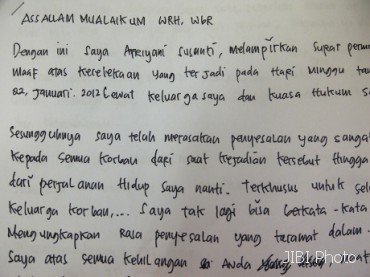 ASSALLAM MUALAIKUM WRH, WBR
Dengan ini saya Apriyani Susanti, melampirkan surat
Maaf atas kecelekaan yang terjadi pada Hari Minggu
22, Januari. 2012 Lewat keluarga saya dan kuasa Hukum
Sesungguhnya saya telah merasakan penyesalan yang
kepada semua korban dari saat kejadian tersebut hingga
dari perjalanan Hidup saya nanti. Terkhusus untuk
keluarga korban,... Saya tak lagi bisa berkata-kata
Mengungkapkan Rasa penyesalan yang teramat dalam
Saya atas semua kehilangan Anda
JIBI Photo